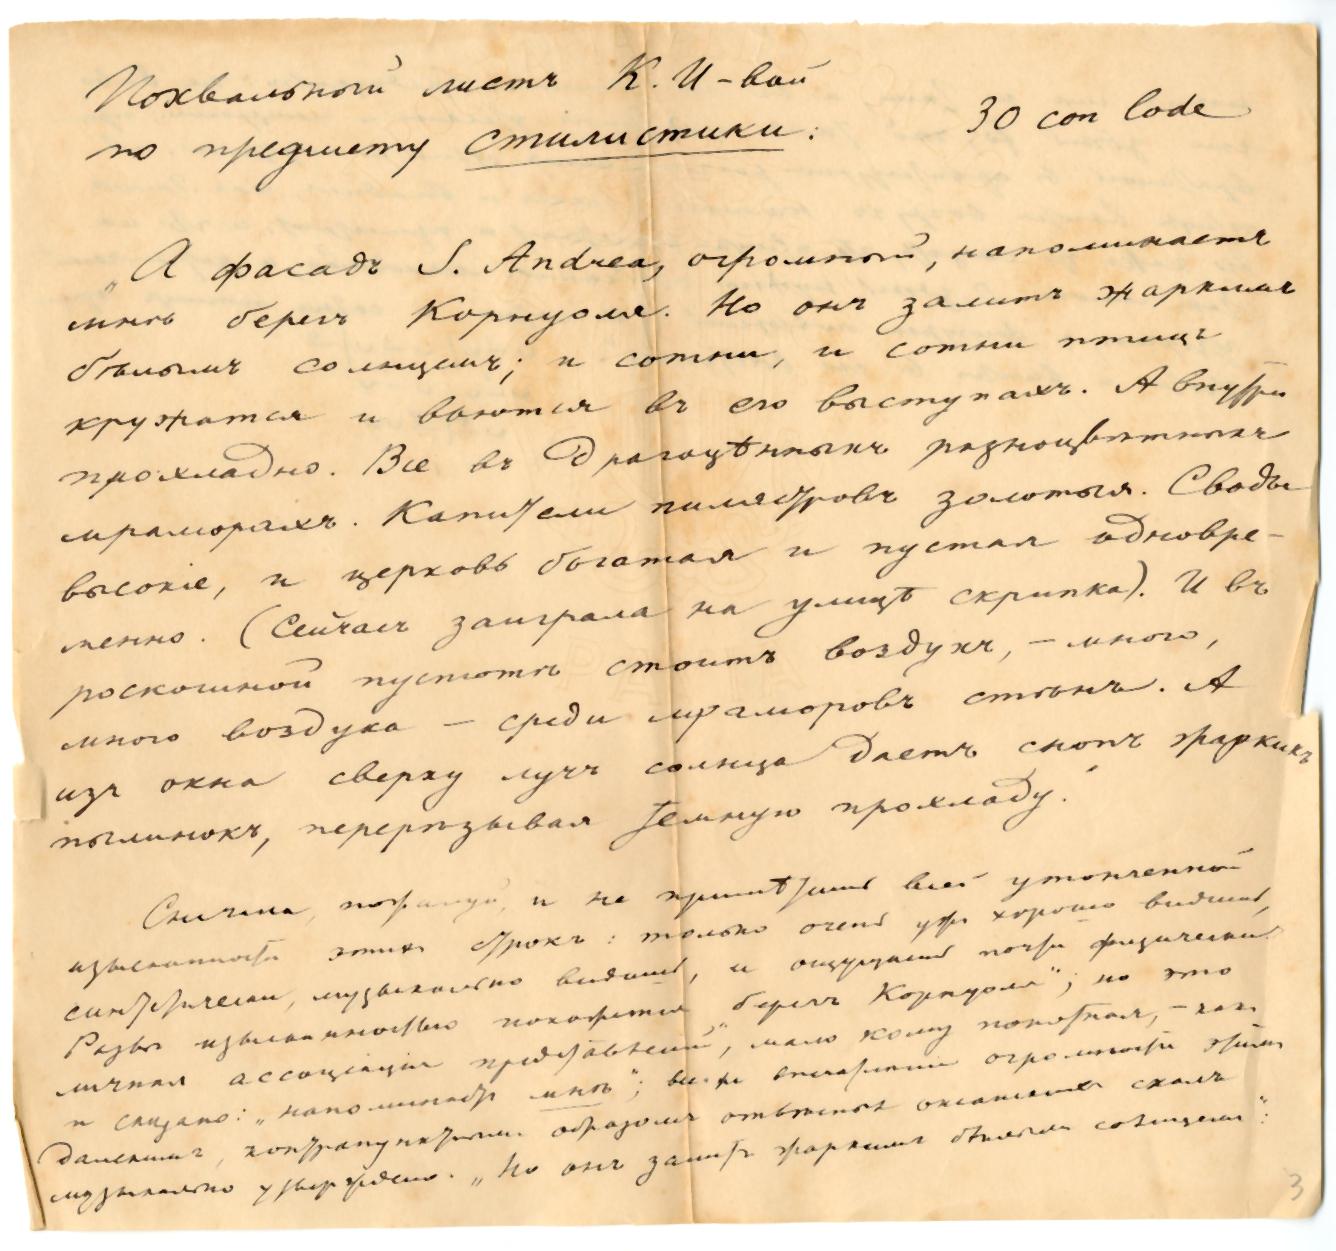 Похвальный листъ К. И-вой
по предмету стилистики:
30 con lode
„А фасадъ S. Andrea, огромный, напоминаетъ
мнѣ берегъ Корнуоля. Но онъ залитъ жаркимъ
бѣлымъ солнцемъ; и сотни, и сотни птицъ
кружатся и вьются въ его выступахъ. А внутри
прохладно. Все въ драгоцѣнныхъ разноцвѣтныхъ
мраморахъ. Капители пилястровъ золотыя. Своды
высокіе, и церковь богатая и пустая одновре-
менно. (Сейчасъ заиграла на улицѣ скрипка). И въ
роскошной пустотѣ стоитъ воздухъ, – много,
много воздуха – среди мраморовъ стѣнъ. А
изъ окна сверху лучъ солнца даетъ снопъ жаркихъ
пылинокъ, перерѣзывая темную прохладу."
Сначала, пожалуй, и не примѣтишь всей утонченной
изысканности этихъ строкъ: только очень ужъ хорошо видишь,
синтетически, музыкально видишь, и ощущаешь почти физически.
Развѣ изысканностью покажется „берегъ Корнуоля"; но это
личная ассоціація представленій, мало кому понятная, – такъ
и сказано: „напоминаетъ мнѣ"; все же впечатлѣніе огромности этимъ
далекимъ, контрапунктнымъ образомъ отвѣсныхъ океанскихъ скалъ
музыкально утверждено. „Но онъ залитъ жаркимъ бѣлымъ солнцемъ":
3